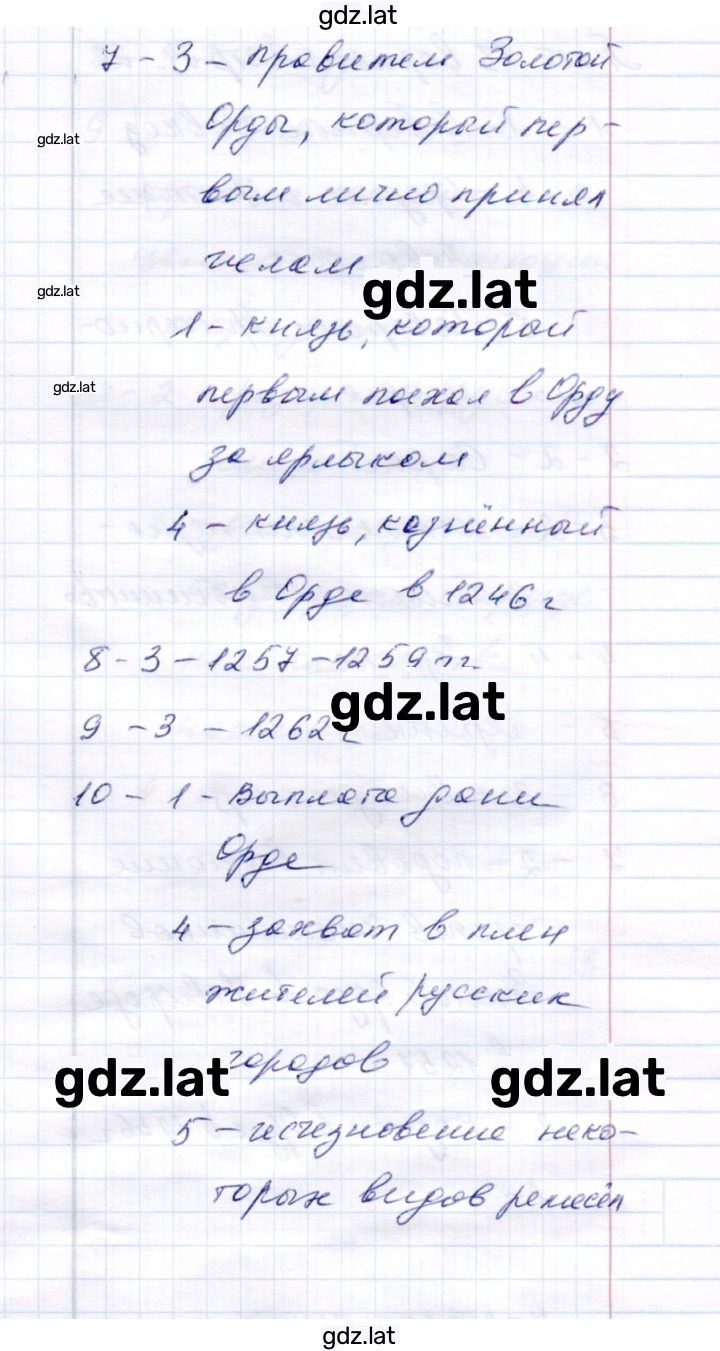 gdz.lat
7 - 3 - правители Золотой
Орды, который пер-
gdz.lat
вым лично принял
ислам
gdz.lat
gdz.lat
1 - князь, который
gdz.lat
первым поехал в Орду
за ярлыком
4 - князь, казнённый
в Орде в 1246 г
8 - 3 - 1257 - 1259 гг.
gdz.lat
9 - 3 - 1262 г
10 - 1 - Выплата дани
Орде
4 - захват в плен
жителей русских
городов
gdz.lat
gdz.lat
5 - исчезновение неко-
торых видов ремесёл
gdz.lat